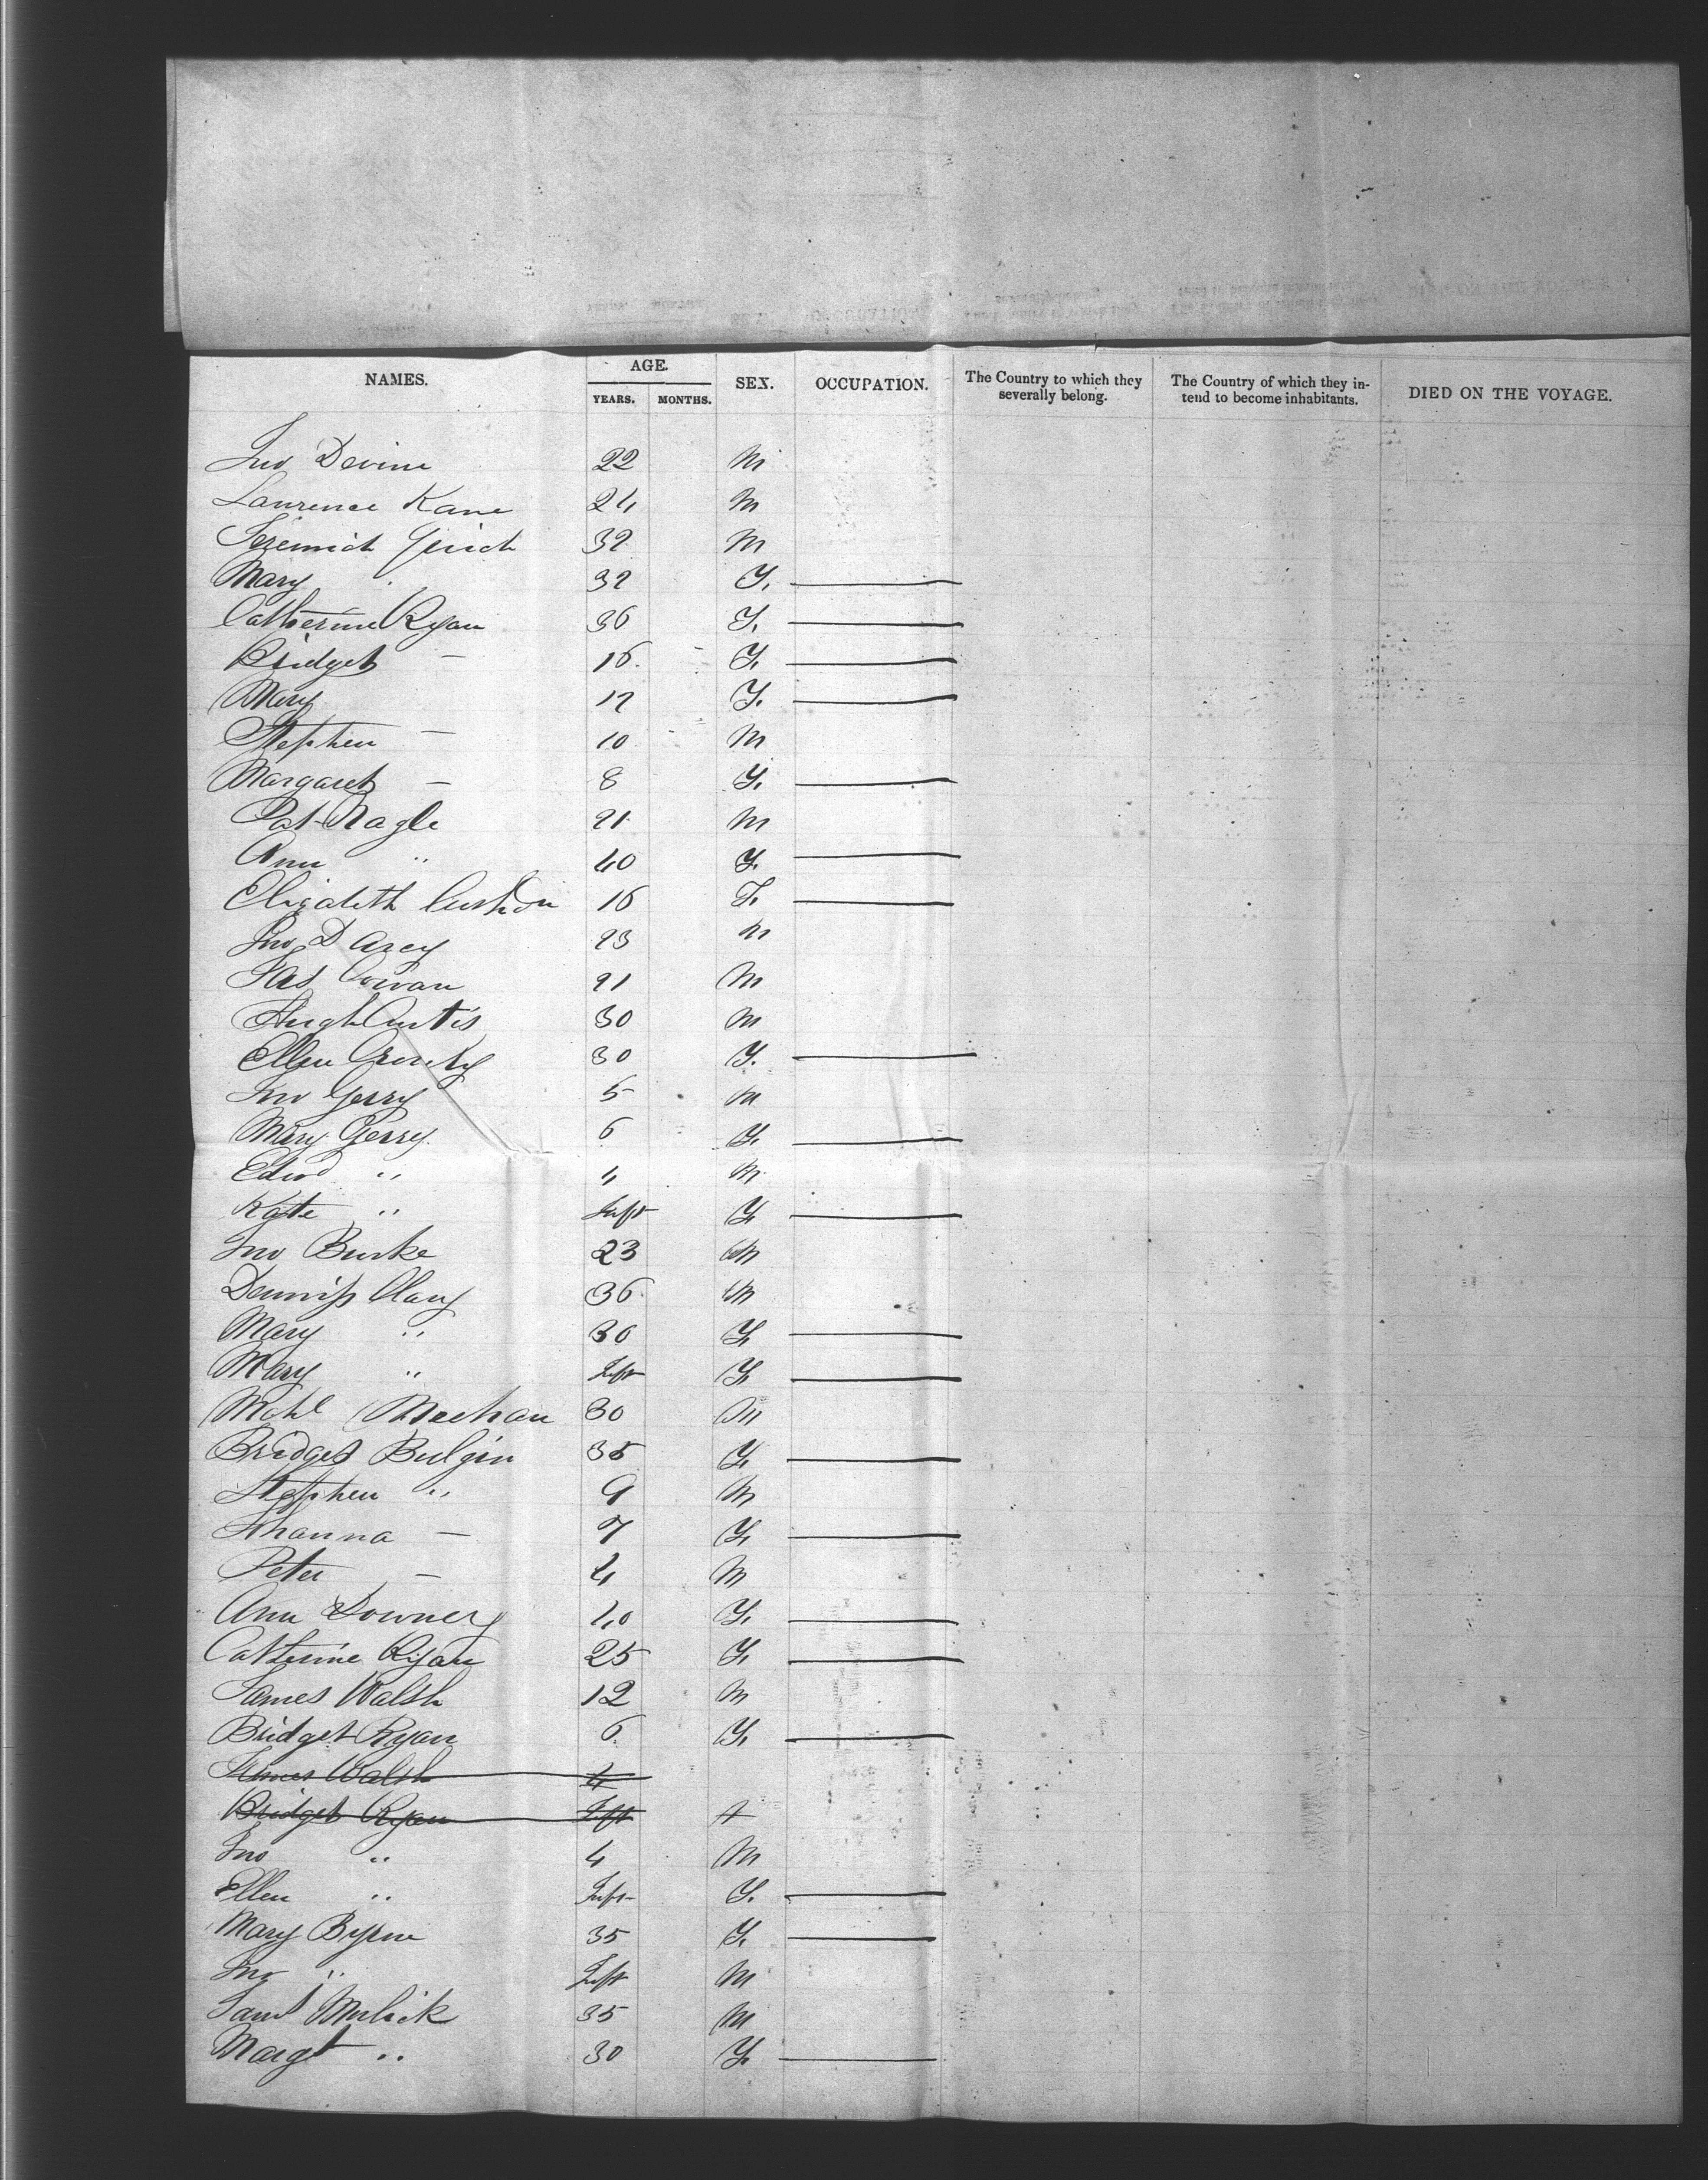 NAMES. AGE. SEX. OCCUPATION. The Country to which they severally belong. The Country of which they intend to become inhabitants. DIED ON THE VOYAGE.
YEARS. MONTHS.
Jno Devine 22 M
Laurence Kane 24 M
Jeremiah 32 M
Mary 32 F. —
Catherine Ryan 36 F. —
Bridget — 16. F. —
Mary 12 F. —
Stephen — 10 M
Margaret — 8 F. —
Pat Nagle 21 M
Ann " 40 F. —
Elizabeth 16 F. —
Jno D Arcy 23 M
Jas Cowan 21 M
Hugh Curtis 30 M
Ellen 30 F. —
Jno Gerry 5 M
Mary Gerry 6 F. —
Edwd " 4 M
Kate " Inft F. —
Jno Burke 23 M
Dennis Clary 36 M
Mary " 30 F. —
Mary " Inft F. —
Mchl Meehan 30 M
Bridget Bulgin 35 F. —
Stephen " 9 M
Jhanna — 7 F. —
Peter — 4 M
Ann Downey 40 F. —
Catherine Ryan 25 F. —
James Walsh 12 M
Bridget Ryan 6 F. —
James Walsh 4
Bridget Ryan Inft
Jno " 4 M
Ellen " Inft F. —
Mary Byrne 35 F. —
Jno " Inft M
Saml 35 M
Margt " 30 F. —